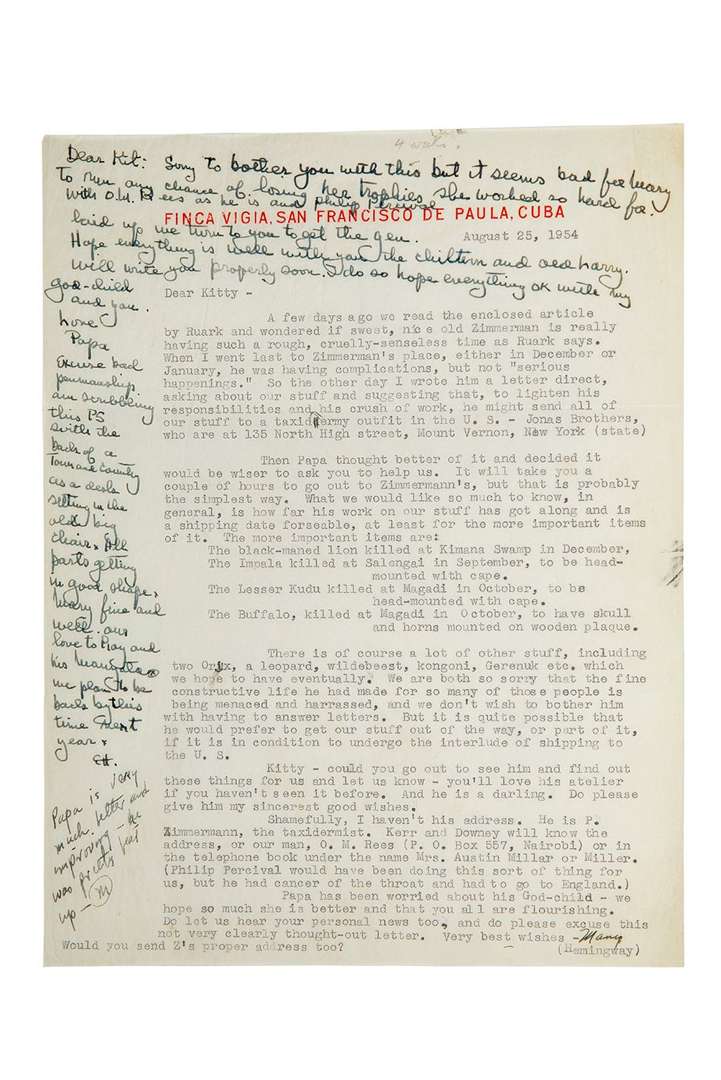 4 wks.
Dear Kit: Sorry to bother you with this but it seems bad for Mary
to run any chance of losing her trophies she worked so hard for.
With O.M. Rees as he is and Philip Percival
laid up we turn to you to get the gen.
Hope everything is well with you the children and old Harry.
Will write you properly soon. I do so hope everything OK with my
god-child
and you.
Love
Papa
Excuse bad
penmanship,
am scribbling
this PS
with the
back of a
Town and Country
as a desk
sitting in the
old big
chair. All
parts getting
in good shape.
Mary fine and
well. Our
love to Ray and
his
we plan to be
back by this
time next
year.
EH.
Papa is very
much better and
improving - he
was pretty beat
up - M
FINCA VIGIA, SAN FRANCISCO DE PAULA, CUBA
August 25, 1954
Dear Kitty -
A few days ago we read the enclosed article
by Ruark and wondered if sweet, nice old Zimmerman is really
having such a rough, cruelly-senseless time as Ruark says.
When I went last to Zimmerman's place, either in December or
January, he was having complications, but not "serious
happenings." So the other day I wrote him a letter direct,
asking about our stuff and suggesting that, to lighten his
responsibilities and his crush of work, he might send all of
our stuff to a taxidermy outfit in the U. S. - Jonas Brothers,
who are at 135 North High street, Mount Vernon, New York (state)
Then Papa thought better of it and decided it
would be wiser to ask you to help us. It will take you a
couple of hours to go out to Zimmermann's, but that is probably
the simplest way. What we would like so much to know, in
general, is how far his work on our stuff has got along and is
a shipping date forseable, at least for the more important items
of it. The more important items are:
The black-maned lion killed at Kimana Swamp in December,
The Impala killed at Salengai in September, to be head-
mounted with cape.
The Lesser Kudu killed at Magadi in October, to be
head-mounted with cape.
The Buffalo, killed at Magadi in October, to have skull
and horns mounted on wooden plaque.
There is of course a lot of other stuff, including
two Oryx, a leopard, wildebeest, kongoni, Gerenuk etc. which
we hope to have eventually. We are both so sorry that the fine
constructive life he had made for so many of those people is
being menaced and harrassed, and we don't wish to bother him
with having to answer letters. But it is quite possible that
he would prefer to get our stuff out of the way, or part of it,
if it is in condition to undergo the interlude of shipping to
the U. S.
Kitty - could you go out to see him and find out
these things for us and let us know - you'll love his atelier
if you haven't seen it before. And he is a darling. Do please
give him my sincerest good wishes.
Shamefully, I haven't his address. He is P.
Zimmermann, the taxidermist. Kerr and Downey will know the
address, or our man, O. M. Rees (P. O. Box 557, Nairobi) or in
the telephone book under the name Mrs. Austin Millar or Miller.
(Philip Percival would have been doing this sort of thing for
us, but he had cancer of the throat and had to go to England.)
Papa has been worried about his God-child - we
hope so much she is better and that you all are flourishing.
Do let us hear your personal news too, and do please excuse this
not very clearly thought-out letter. Very best wishes - Mary
Would you send Z's proper address too? (Hemingway)